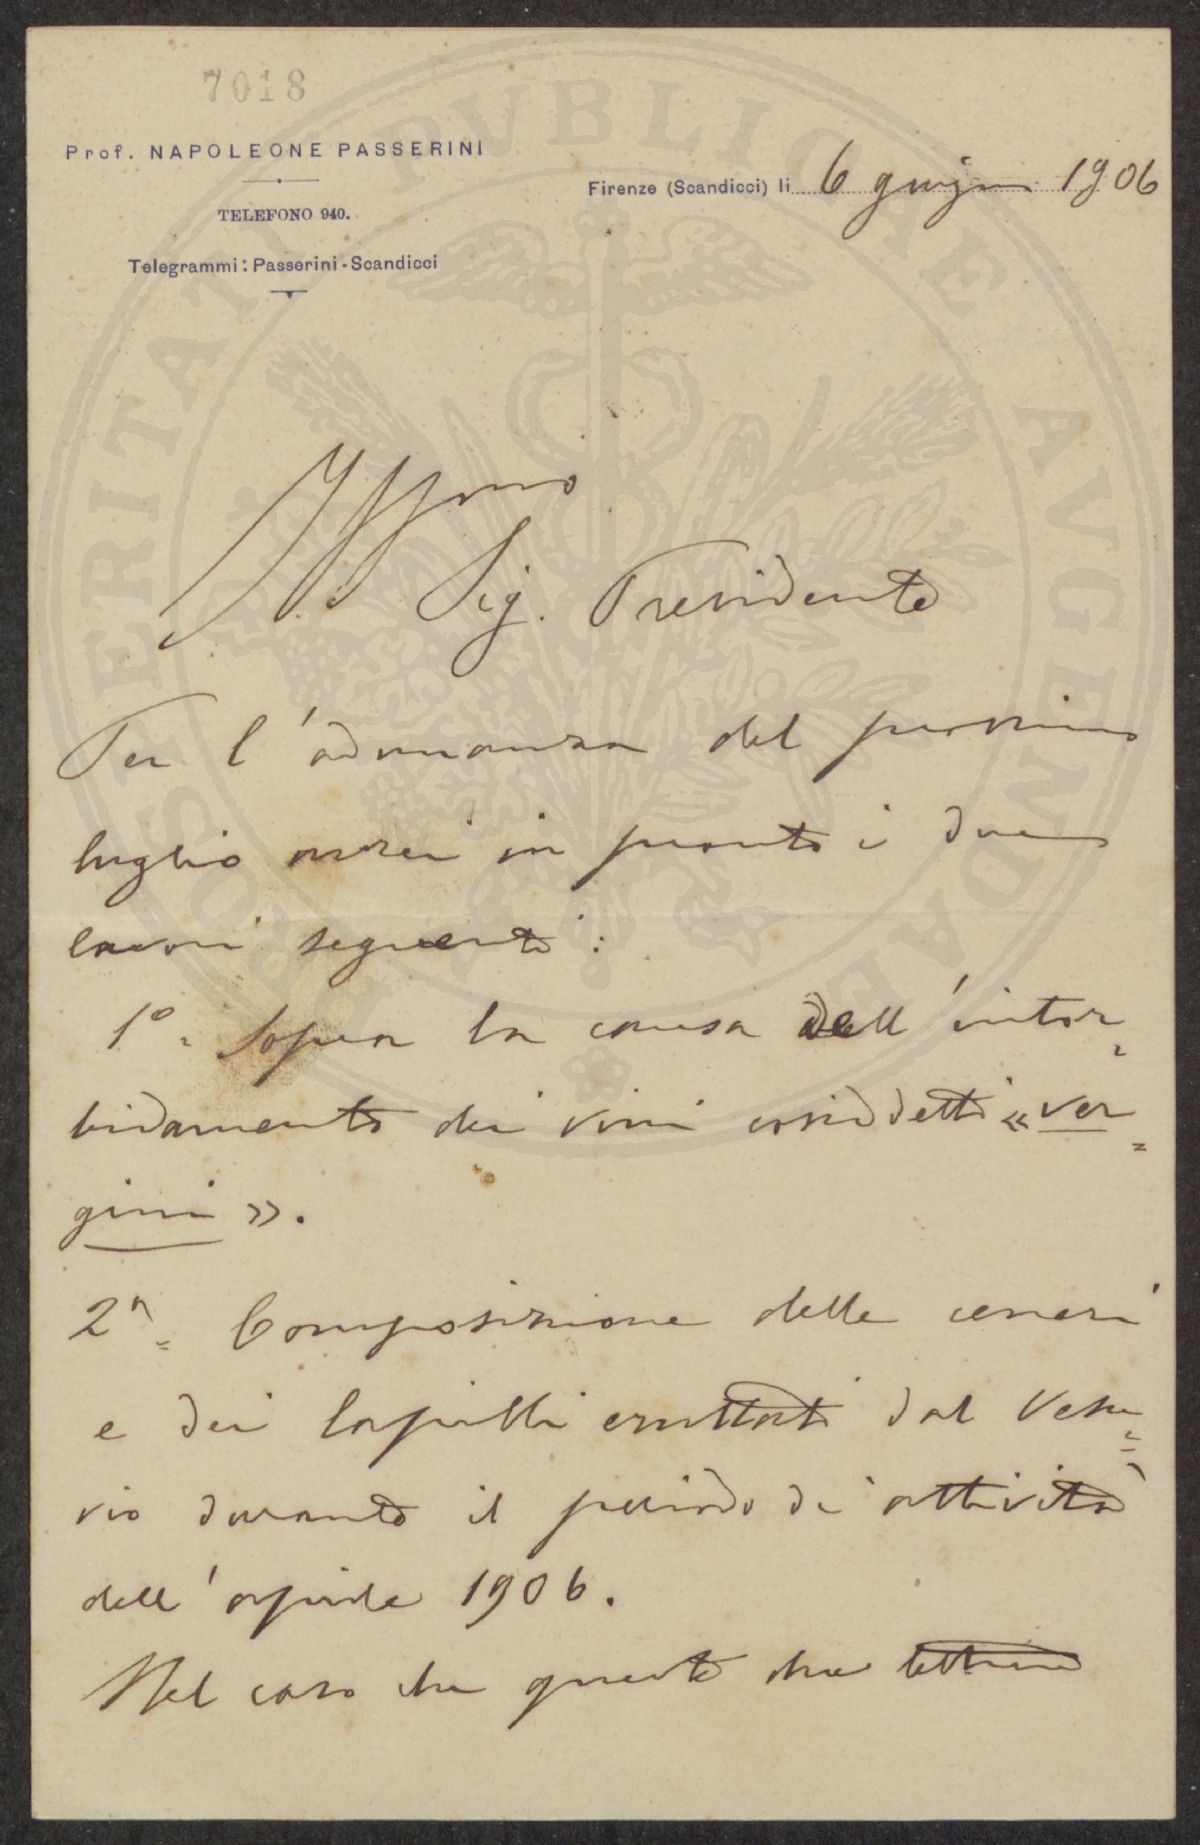 7018
Prof. NAPOLEONE PASSERINI
TELEFONO 940.
Telegrammi: Passerini-Scandicci
Firenze (Scandicci) li 6 giugno 1906
PROSPERITATI PVBLICAE AVGENDAE
Ill.mo
Sig. Presidente
Per l'adunanza del prossimo
luglio avrei in pronto i due
lavori seguenti:
1º = Sopra la causa dell'intor=
bidamento dei vini cosiddetti «ver=
gini».
2º = Composizione delle ceneri
e dei lapilli eruttati dal Vesu=
vio durante il periodo di attività
dell'aprile 1906.
Nel caso che queste due letture